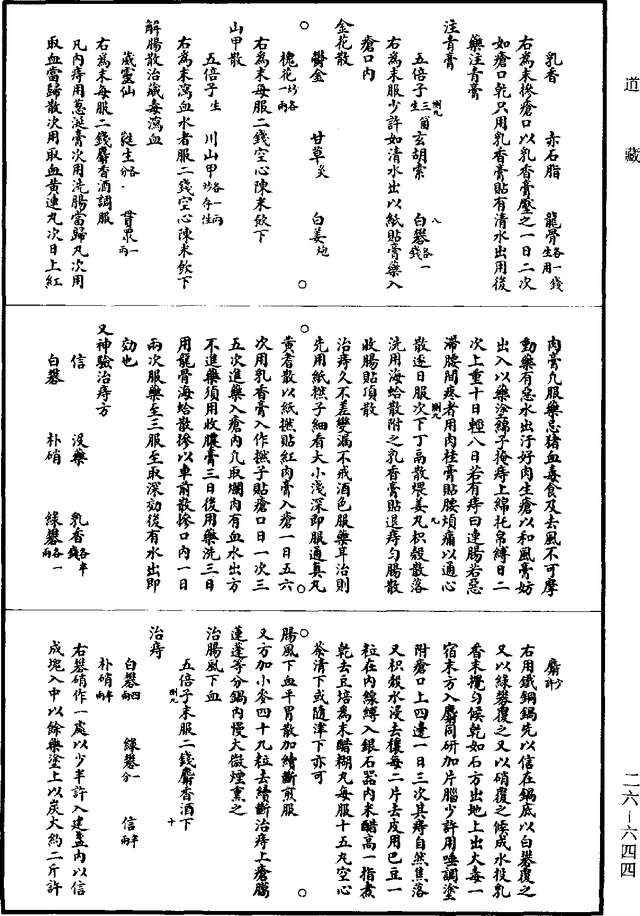 道藏
乳香　赤石脂　龍骨各一錢生用
右為末摻瘡口以乳香膏壓之一日二次
如瘡口乾只用乳香膏貼有清水出用後
藥注青膏
注青膏
五倍子三箇生　玄胡索　白礬各一錢
右為末服少許如清水出以紙貼膏藥入
瘡口內
金花散
鬱金　甘草炙　白姜炮
槐花炒各一兩
右為末每服二錢空心陳米飲下
山甲散
五倍子生　川山甲各一兩炒存性
右為末瀉血水者服二錢空心陳米飲下
解腸散治藏毒瀉血
葳靈仙　貫眾一兩
右為末每服二錢麝香酒調服
凡內痔用蔥涎膏次用洗腸當歸丸次用
取血當歸散次用取血黃連丸次日上紅
肉膏凡服藥忌猪血毒食及去風不可摩
動藥有惡水出汙好肉生瘡以和風膏妨
出入以藥塗綿子掩痔上綿托帛縛日二
次上重十日輕八日若有痔曰連腸若惡
滯腰間疼者用肉桂膏貼腰煩痛以通心
散逐日服次下丁香散煨姜丸枳殼散落
洗用海蛤散附之乳香膏貼退痔勻腸散
收腸貼頂散
治痔久不差變漏不戒酒色服藥耳治則
先用紙撚子細看大小淺深即服通真丸
黃耆散以紙撚貼紅肉膏入瘡一日五六
次用乳香膏入作撚子貼瘡口日一次三
五次進藥入瘡內凡取爛肉有血水出方
不進藥須用收膿膏三日後用藥洗三日
用龍骨海蛤散摻以車前散摻口內一日
兩次服藥至三服至取深効後有水出即
効也
又神驗治痔方
信　沒藥　乳香各半錢
白礬　朴硝　緑礬各一兩
麝少許
右用鐵銅鍋先以信在鍋底以白礬覆之
又以緑礬覆之又以硝覆之候成水投乳
香末攪勻候乾如石方出地上出火毒一
宿末方入麝同研加片腦少許用唾調塗
附瘡口上四邊一日三次其痔自然焦落
又枳殼水浸去穰每二片去皮用巴豆一
粒在內線縛入銀石器內米醋高一指煮
乾去豆焙為末醋糊丸每服十五丸空心
茶清下或隨津下亦可
腸風下血平胃散加續斷煎服
又方加小麥四十九粒去續斷治痔上瘡膓
蓬蓬等分鍋內慢火微煙熏之
治腸風下血
五倍子末服二錢麝香酒下
治痔
白礬四兩　緑礬一分　信半兩
朴硝半兩
右礬硝作一處以少半許入建盞內以信
成塊入中以餘藥塗上以炭火約二斤許
二六—六四四